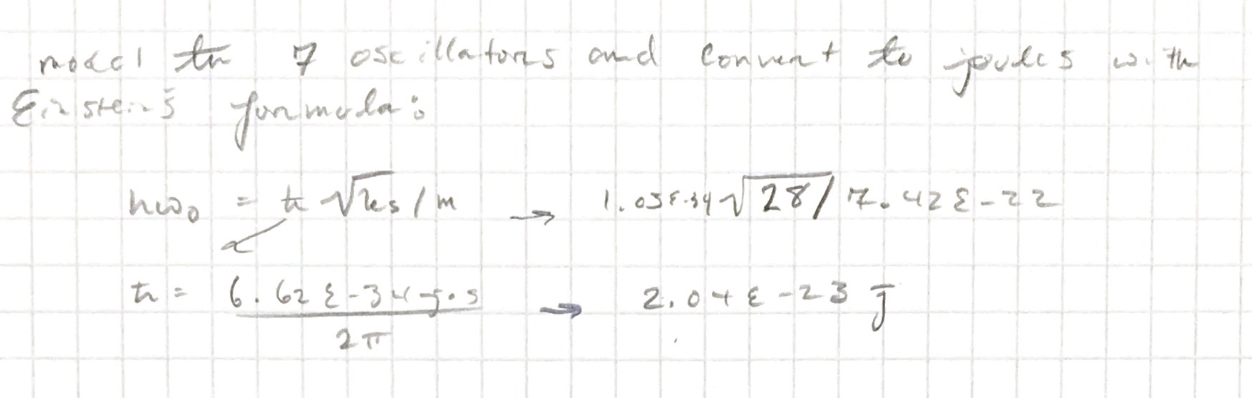 model the 7 oscillators and convert to joules with
Einstein's formula:
ħω₀ = ħ √ks/m → 1.05E-34 √28/7.42E-22
ħ = 6.62E-34 J·s / 2π → 2.04E-23 J